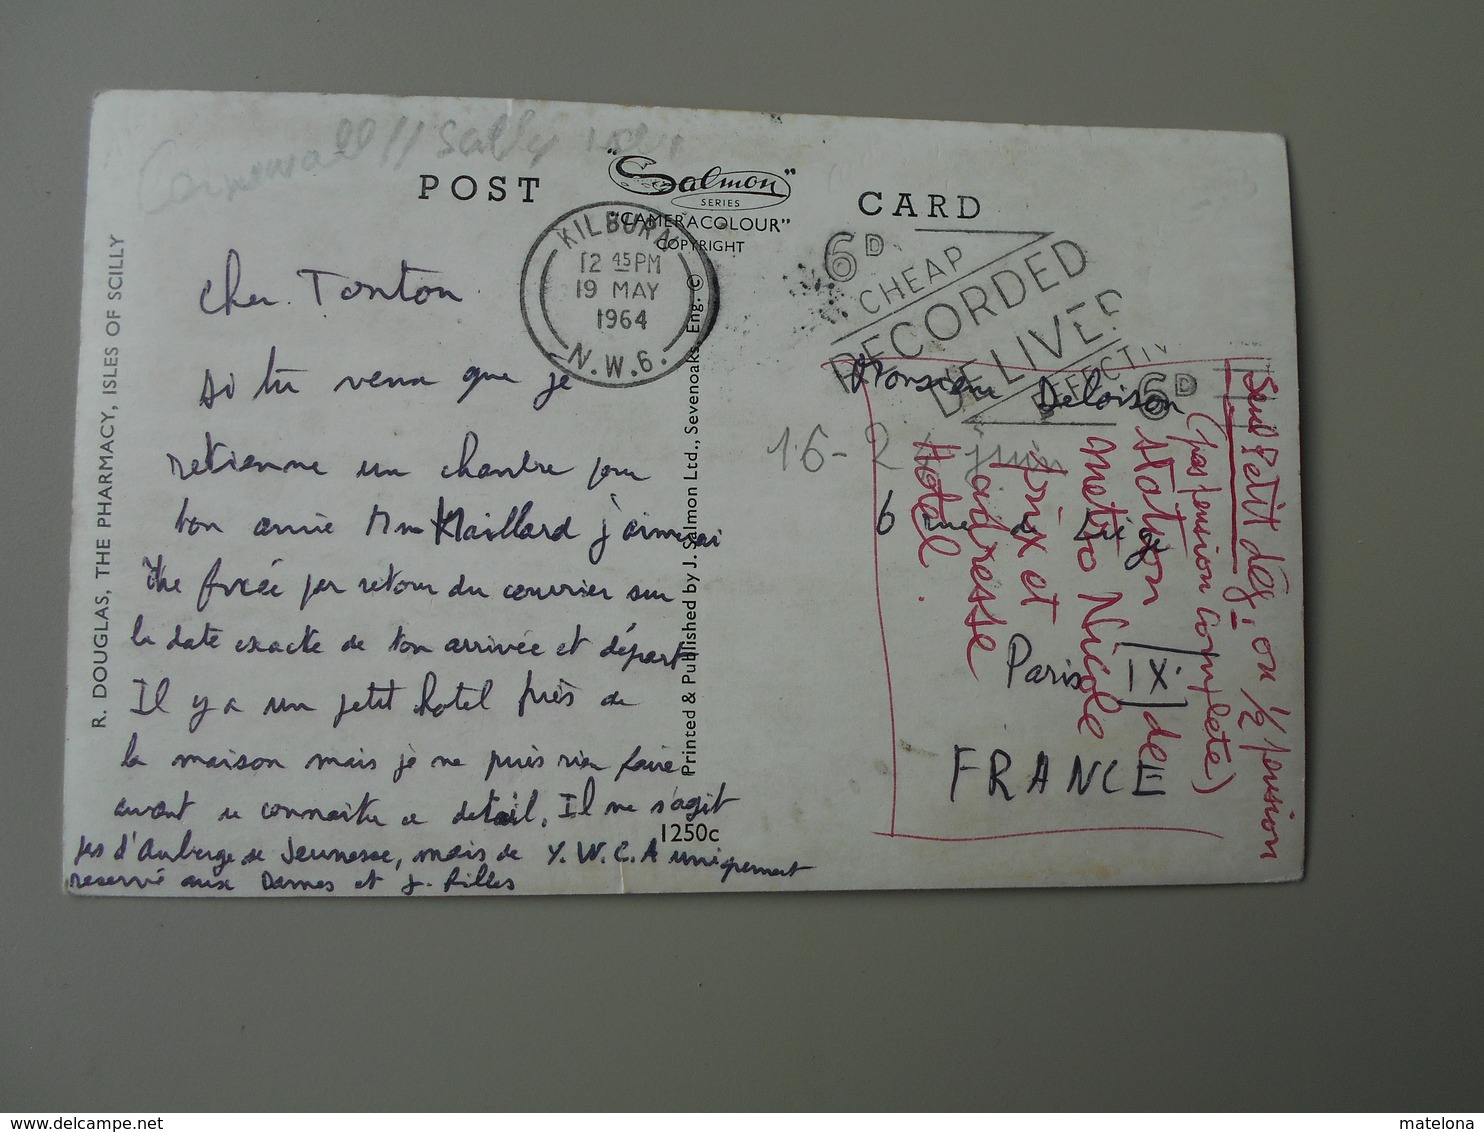 POST CARD
"Salmon"
SERIES
"CAMERACOLOUR"
COPYRIGHT
KILBURN
12 45 PM
19 MAY
1964
N.W.6.
6D
CHEAP
RECORDED
DELIVER
EFFECTIV
6D
R. DOUGLAS, THE PHARMACY, ISLES OF SCILLY
Printed & Published by J. Salmon Ltd., Sevenoaks. Eng. ©
1250c
Cher Tonton
si tu veux que je
retienne un chambre pour
ton amie Mme Maillard j'aimerai
être fixée par retour du courrier sur
la date exacte de ton arrivée et départ
Il y a un petit hotel près de
la maison mais je ne puis rien faire
avant de connaitre ce detail. Il ne s'agit
pas d'Auberge de Jeunesse, mais de Y.W.C.A uniquement
reservé aux Dames et j. filles
Monsieur Deloison
6 rue de Liège
Paris IX
FRANCE
16-2 juin
Seul Petit déj. ou 1/2 pension
(pas pension complete)
station de
metro Nicole
prix et
adresse
Hotel.
matelona